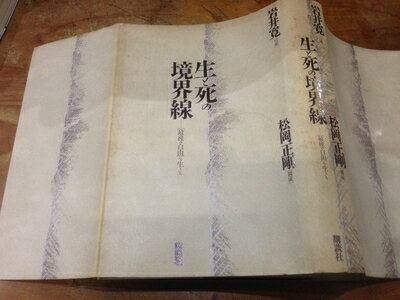 岩井寛
生と死の
境界線
「最後の自由」を生きる
松岡正剛
講談社
岩井寛
生と死の境界線
「最後の自由」を生きる
松岡正剛
講談社